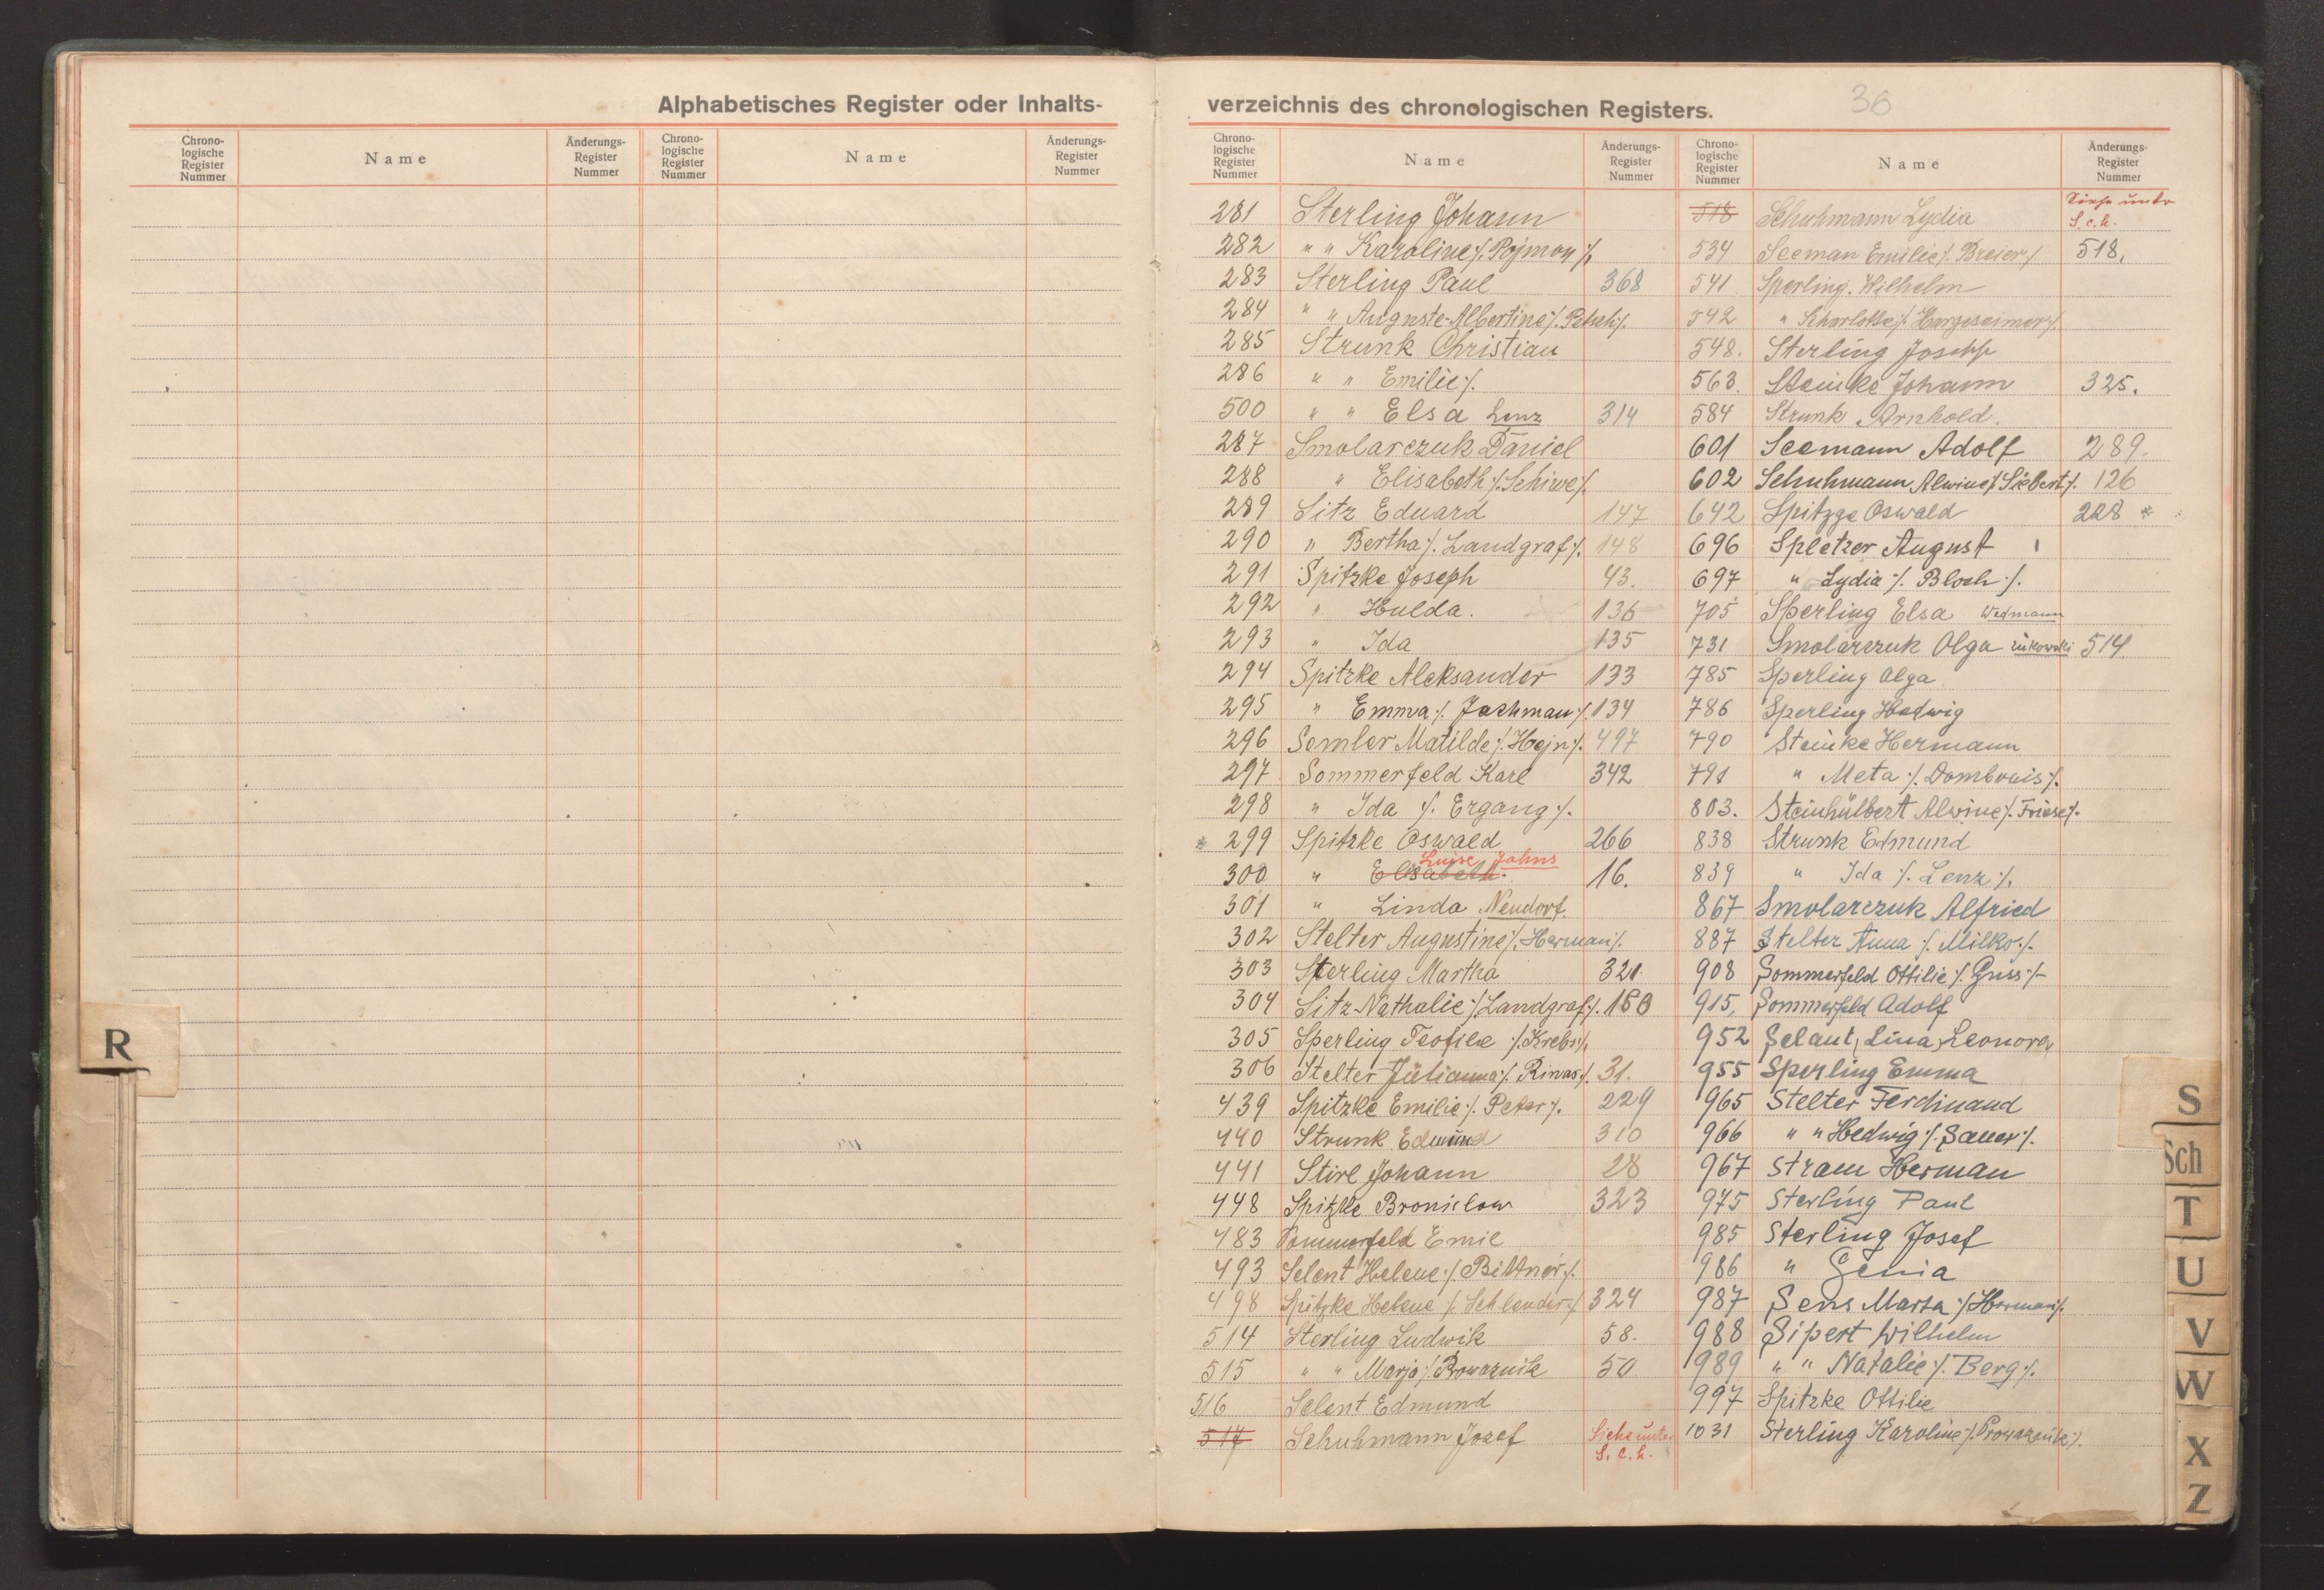 Alphabetisches Register oder Inhalts-
Chrono-
logische
Register
Nummer
Name
Änderungs-
Register
Nummer
Chrono-
logische
Register
Nummer
Name
Änderungs-
Register
Nummer
R
verzeichnis des chronologischen Registers.
36
Chrono-
logische
Register
Nummer
Name
Änderungs-
Register
Nummer
281 Sterling Johann
282 " " Karoline /. Pojmon /.
283 Sterling Paul 368
284 " " Auguste-Albertine /. Patsch /.
285 Strunk Christian
286 " " Emilie /.
500 " " Elsa Lenz 314
287 Smolarczuk Daniel
288 " Elisabeth /. Schiwe /.
289 Sitz Eduard 147
290 " Bertha /. Landgraf /. 148
291 Spitzke Joseph 43.
292 " Hulda. 136
293 " Ida 135
294 Spitzke Aleksander 133
295 " Emma /. Jachman /. 134
296 Semler Matilde /. Hejn /. 497
297 Sommerfeld Karl 342
298 " Ida /. Ergang /.
* 299 Spitzke Oswald 266
Luise Johns
300 " Elsabeth. 16.
301 " Linda Neudorf
302 Stelter Augustine /. Herman /.
303 Sterling Martha 321.
304 Sitz Nathalie /. Landgraf /. 150
305 Sperling Teofile /. Krebs /.
306 Stelter Julianna /. Rinas /. 31.
439 Spitzke Emilie /. Peter /. 229
440 Strunk Edmund 310
441 Stirl Johann 28
448 Spitzke Bronislow 323
483 Sommerfeld Emil
493 Selent Helene /. Bittner /.
498 Spitzke Helene /. Schlender /. 324
514 Sterling Ludwik 58.
515 " " Marja /. Prowaznik 50
516 Selent Edmund
517 Schuhmann Josef Siehe unter
S. c. h.
Chrono-
logische
Register
Nummer
Name
Änderungs-
Register
Nummer
518 Schuhmann Lydia Siehe unter
S. c. h.
534 Seeman Emilie /. Breier /. 518.
541 Sperling Wilhelm
542 " Scharlotte /. Hargeseimer /.
548. Sterling Joseph
563. Steinke Johann 325.
584 Strunk Arnhold.
601 Seemann Adolf 289.
602 Schuhmann Alwine /. Siebert /. 126
642 Spitzge Oswald 228 *
696 Spletzer August
697 " Lydia /. Bloch /.
705 Sperling Elsa Wedmann
731 Smolarczuk Olga Zukowski 514
785 Sperling Olga
786 Sperling Hedwig
790 Steinke Hermann
791 " Meta /. Dombrois /.
803. Steinhülbert Alwine /. Friese /.
838 Strunk Edmund
839 " Ida /. Lenz /.
867 Smolarczuk Alfried
887 Stelter Anna /. Milko /.
908 Sommerfeld Ottilie /. Guss /.
915. Sommerfeld Adolf
952 Selant, Lina, Leonora
955 Sperling Emma
965 Stelter Ferdinand
966 " " Hedwig /. Sauer /.
967 Stram Herman
975 Sterling Paul
985 Sterling Josef
986 " Genia
987 Sens Marta /. Herman /.
988 Sipert Wilhelm
989 " " Natalie /. Berg /.
997 Spitzke Ottilie
1031 Sterling Karoline /. Prowaznik /.
S
Sch
T
U
V
W
X
Z